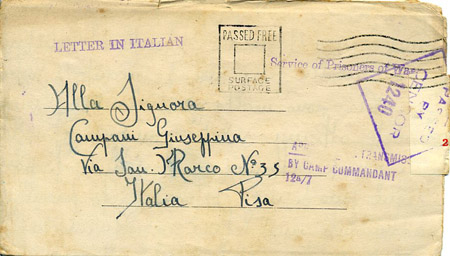 LETTER IN ITALIAN
PASSED FREE
SURFACE
POSTAGE
Service of Prisoners of War
PASSED
BY
CENSOR
1240
2
Alla Signora
Campani Giuseppina
Via San Marco N° 35
Italia Pisa
TRANSMIS
BY CAMP COMMANDANT